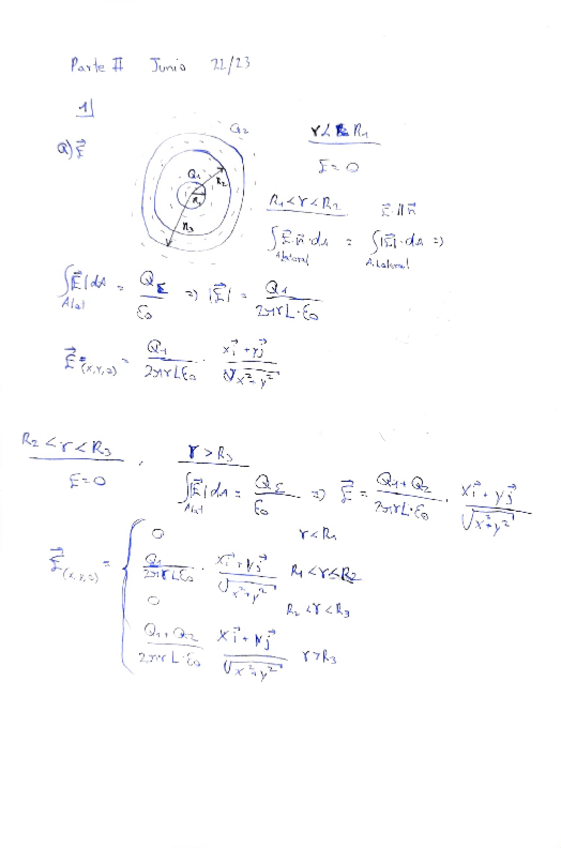 Parte II Junio 22/23
1)
a) E⃗
Q2
Q1
R1
R2
R3
r < R1
E = 0
R1 < r < R2
E⃗ ∥ n⃗
∫ E⃗ · n⃗ · ds = ∫ |E⃗| · ds ⇒
A lateral A lateral
∫ |E⃗| ds = QΣ / ε0 ⇒ |E⃗| = Q1 / 2πrL·ε0
A lat
E⃗ (x,y,z) = Q1 / 2πrLε0 · xi⃗ + yj⃗ / √x²+y²
R2 < r < R3
E = 0
r > R3
∫ |E⃗| ds = QΣ / ε0 ⇒ E⃗ = Q1 + Q2 / 2πrL·ε0 · xi⃗ + yj⃗ / √x²+y²
A lat
E⃗ (x,y,z) = {
0 r < R1
Q1 / 2πrLε0 · xi⃗ + yj⃗ / √x²+y² R1 < r ≤ R2
0 R2 < r < R3
Q1 + Q2 / 2πrL·ε0 xi⃗ + yj⃗ / √x²+y² r > R3